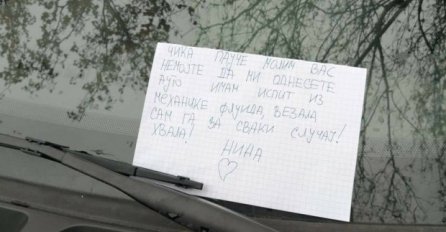 ЧИКА ПАУЧЕ МОЛИМ ВАС
НЕМОЈТЕ ДА МИ ОДНЕСЕТЕ
АУТО ИМАМ ИСПИТ ИЗ
МЕХАНИКЕ ФЛУИДА, ВЕЗАЛА
САМ ГА ЗА СВАКИ СЛУЧАЈ!
ХВАЛА!
НИНА